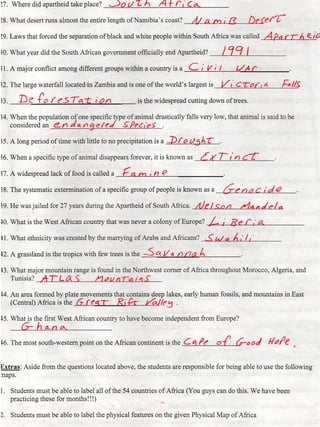 27. Where did apartheid take place? South Africa
28. What desert runs almost the entire length of Namibia's coast? Namib Desert
29. Laws that forced the separation of black and white people within South Africa was called Apartheid
30. What year did the South African government officially end Apartheid? 1991
31. A major conflict among different groups within a country is a Civil War
32. The large waterfall located in Zambia and is one of the world's largest is Victoria Falls
33. Deforestation is the widespread cutting down of trees.
34. When the population of one specific type of animal drastically falls very low, that animal is said to be
considered an endangered species.
35. A long period of time with little to no precipitation is a Drought.
36. When a specific type of animal disappears forever, it is known as Extinct.
37. A widespread lack of food is called a Famine
38. The systematic extermination of a specific group of people is known as a Genocide.
39. He was jailed for 27 years during the Apartheid of South Africa. Nelson Mandela
40. What is the West African country that was never a colony of Europe? Liberia
41. What ethnicity was created by the marrying of Arabs and Africans? Swahili
42. A grassland in the tropics with few trees is the Savannah.
43. What major mountain range is found in the Northwest corner of Africa throughout Morocco, Algeria, and
Tunisia? Atlas Mountains
44. An area formed by plate movements that contains deep lakes, early human fossils, and mountains in East
(Central) Africa is the Great Rift Valley.
45. What is the first West African country to have become independent from Europe?
Ghana
46. The most south-western point on the African continent is the Cape of Good Hope.
Extras: Aside from the questions located above, the students are responsible for being able to use the following
maps.
1. Students must be able to label all of the 54 countries of Africa (You guys can do this. We have been
practicing these for months!!!)
2. Students must be able to label the physical features on the given Physical Map of Africa